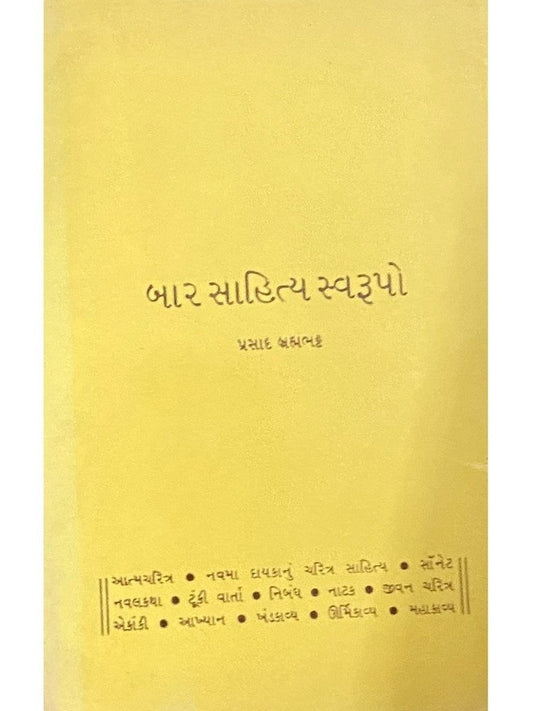 બાર સાહિત્ય સ્વરૂપો
પ્રસાદ બ્રહ્મભટ્ટ
આત્મચરિત્ર ● નવમા દાયકાનું ચરિત્ર સાહિત્ય ● સૉનેટ
નવલકથા ● ટૂંકી વાર્તા ● નિબંધ ● નાટક ● જીવન ચરિત્ર
એકાંકી ● આખ્યાન ● ખંડકાવ્ય ● ઊર્મિકાવ્ય ● મહાકાવ્ય